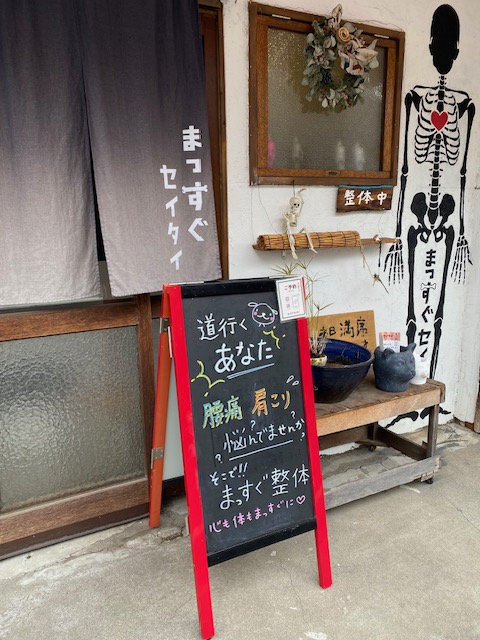 まっすぐ
セイタイ
整体中
まっすぐセイ
ご予約
本日満席
道行く
あなた
腰痛 肩こり
悩んでませんか
? ? ? ?
そこで!!
まっすぐ整体
心も体もまっすぐに♡